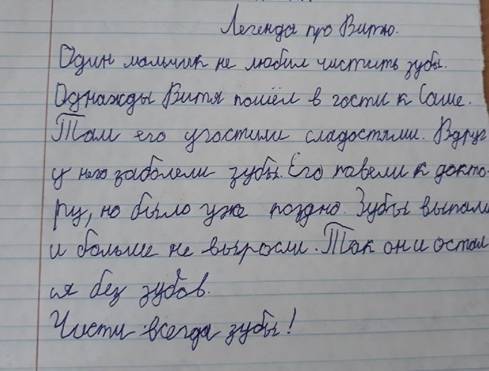 Легенда про Витю.
Один мальчик не любил чистить зубы.
Однажды Витя пошёл в гости к Саше.
Там его угостили сладостями. Вдруг
у него заболели зубы. Его повели к докто-
ру, но было уже поздно. Зубы выпали
и больше не выросли. Так он и остал
ся без зубов.
Чисти всегда зубы!